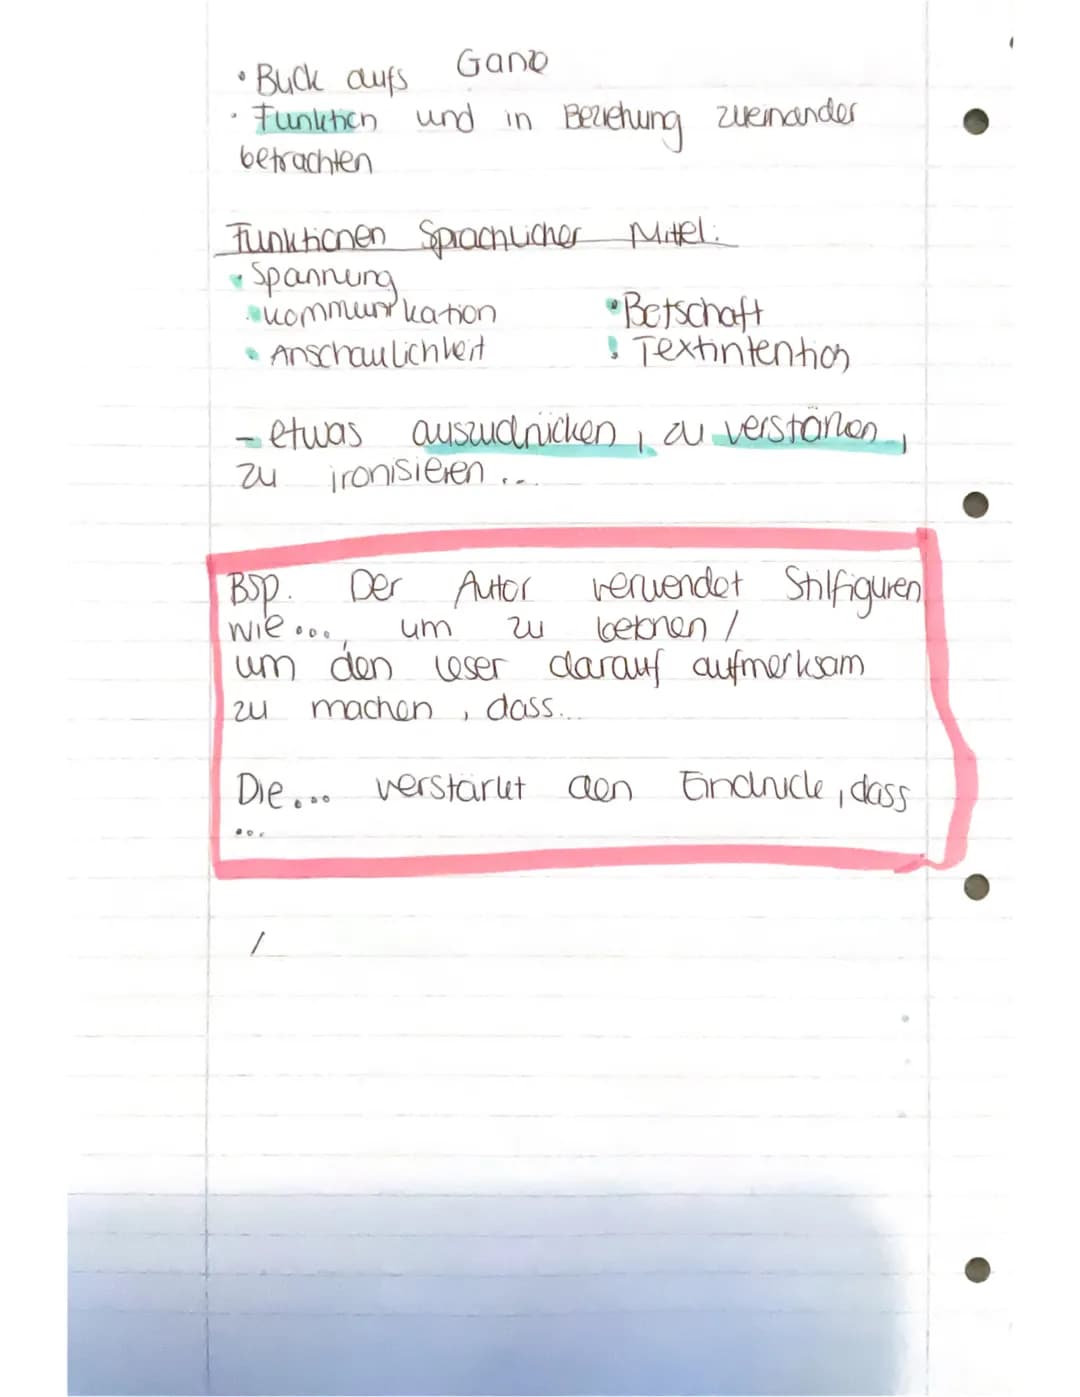 • Blick aufs Ganze
• Funktion und in Beziehung zueinander
betrachten
Funktionen Sprachlicher Mittel:
• Spannung
• Kommunikation
• Botschaft
• Anschaulichkeit
• Textintention
- etwas auszudrücken, zu verstärken,
zu ironisieren...
Bsp. Der Autor verwendet Stilfiguren
wie..., um zu betonen /
um den Leser darauf aufmerksam
zu machen, dass...
Die... verstärkt den Eindruck, dass
...
/